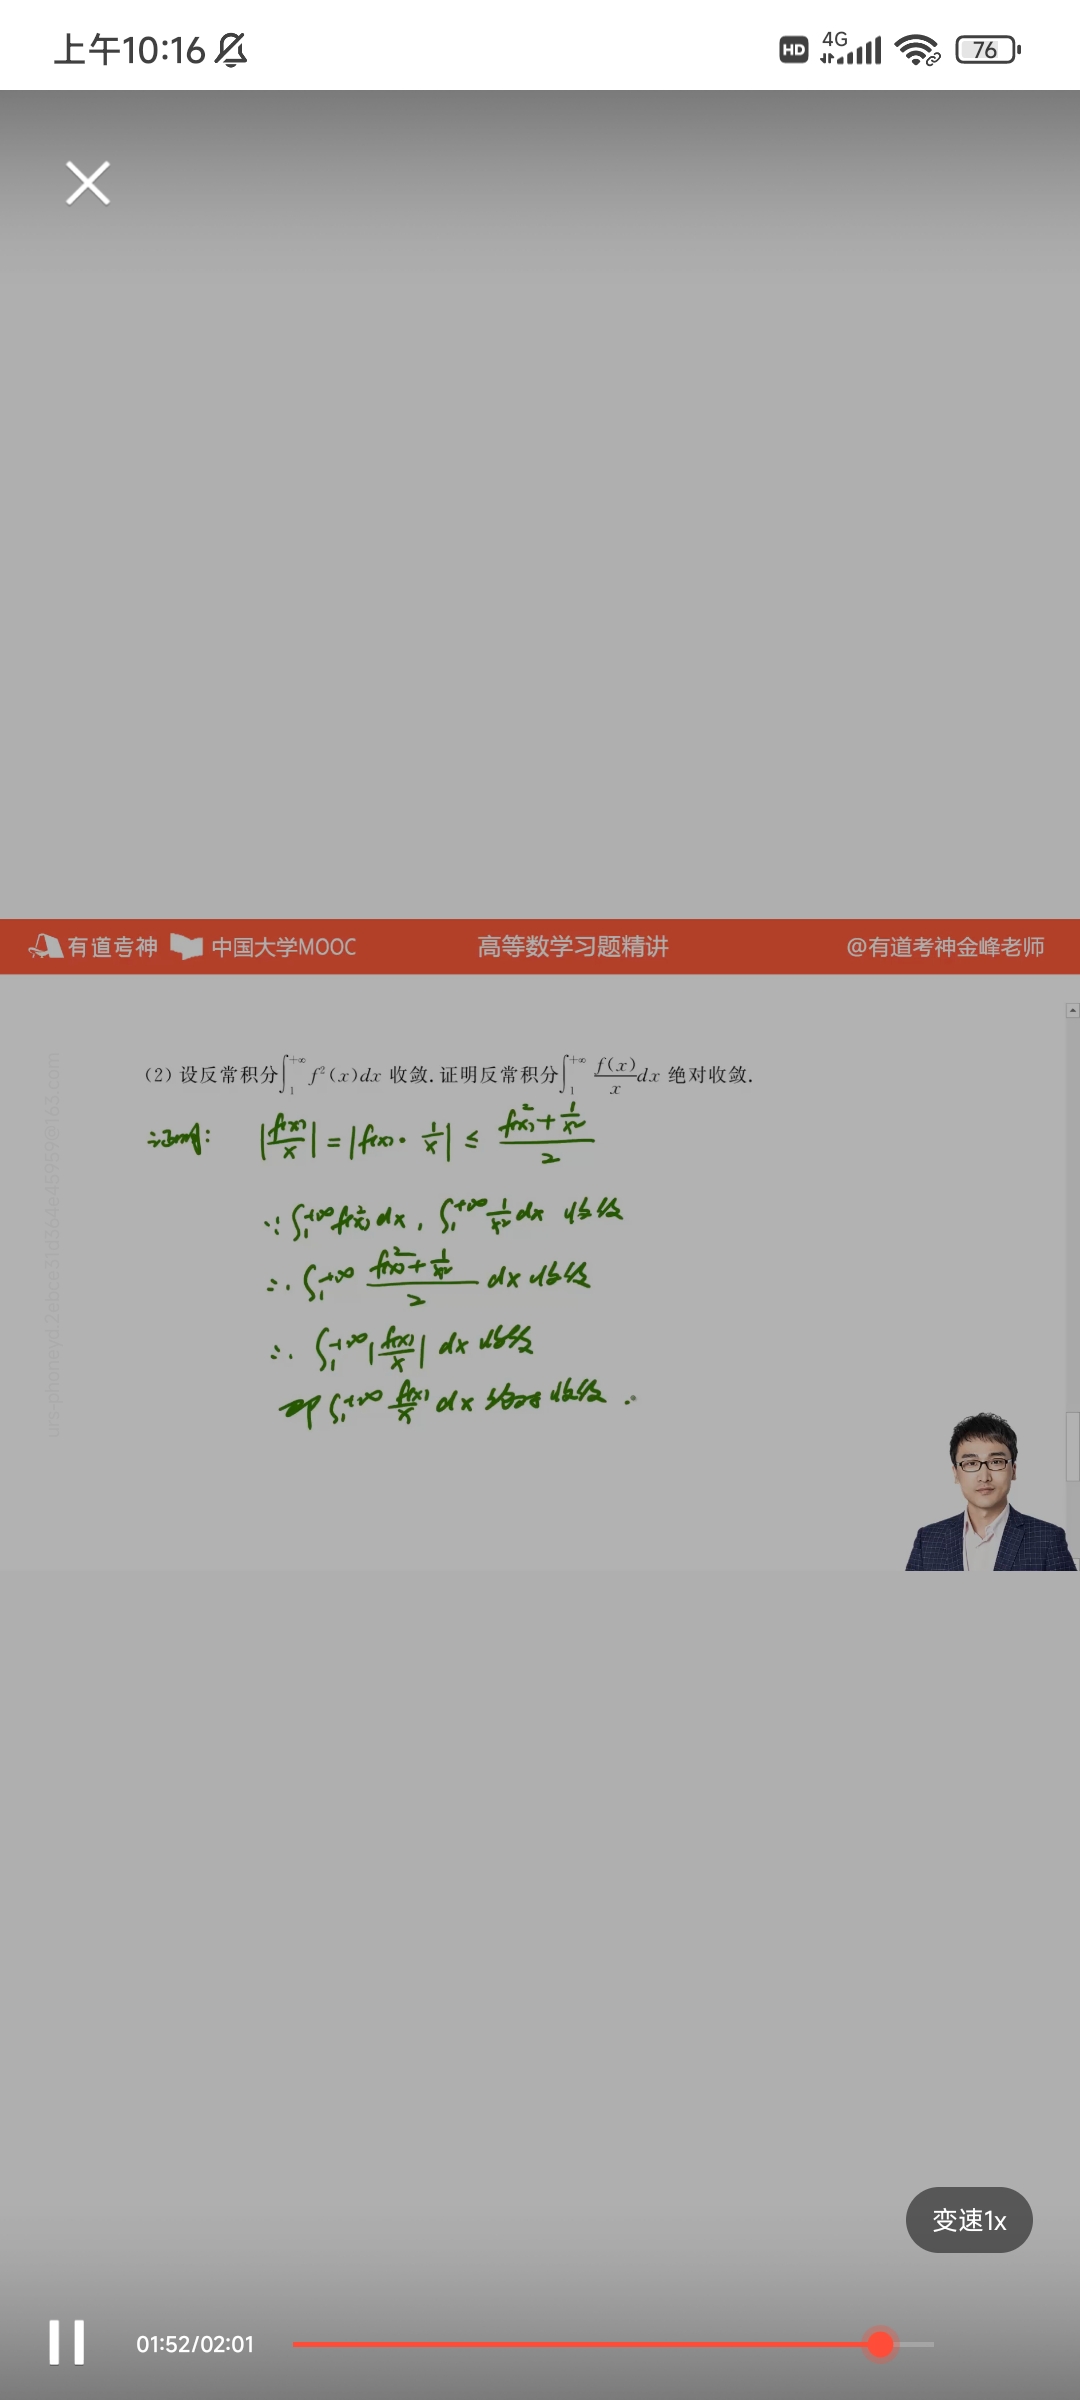 上午10:16 HD 4G 76
有道考神 中国大学MOOC 高等数学习题精讲 @有道考神金峰老师
(2) 设反常积分∫₁^{+∞} f²(x)dx 收敛. 证明反常积分∫₁^{+∞} f(x)/x dx 绝对收敛.
证明: |f(x)/x| = |f(x)·1/x| ≤ (f²(x)+1/x²)/2
∵ ∫₁^{+∞} f²(x)dx, ∫₁^{+∞} 1/x² dx 收敛
∴ ∫₁^{+∞} (f²(x)+1/x²)/2 dx 收敛
∴ ∫₁^{+∞} |f(x)/x| dx 收敛
即 ∫₁^{+∞} f(x)/x dx 绝对收敛.
变速1x
01:52/02:01